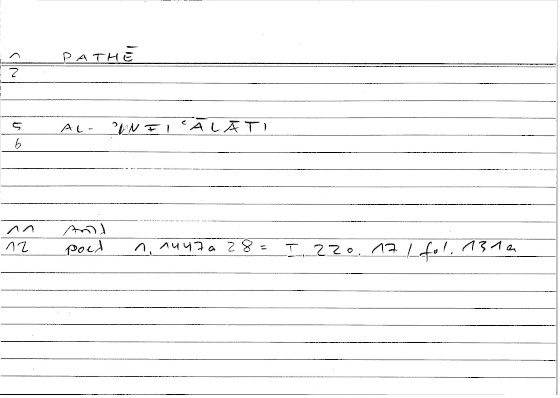 1 PATHĒ
2
5 AL- 'INFIʿĀLĀTI
6
11 Arist
12 poet 1, 1447a 28 = I, 220. 17 / fol. 131a